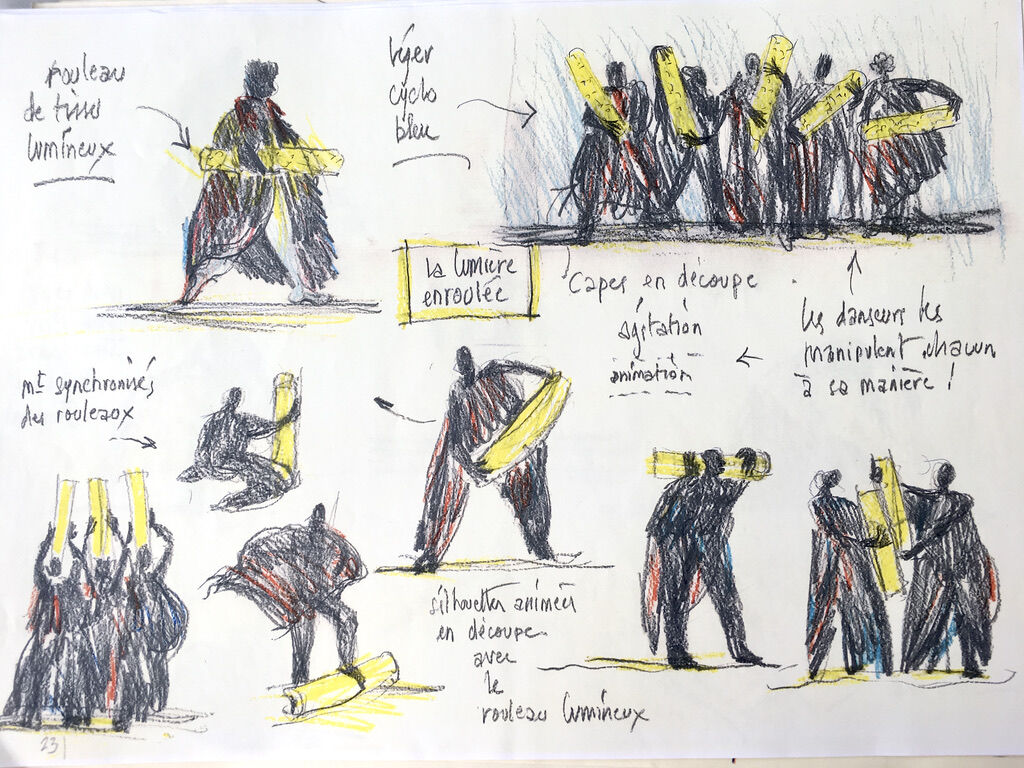 rouleau
de tissu
lumineux
léger
cyclo
bleu
La lumière
enroulée
Capes en découpe
agitation
animation
les danseurs les
manipulent chacun
à sa manière !
mt synchronisés
des rouleaux
silhouettes animées
en découpe
avec
le
rouleau lumineux
23